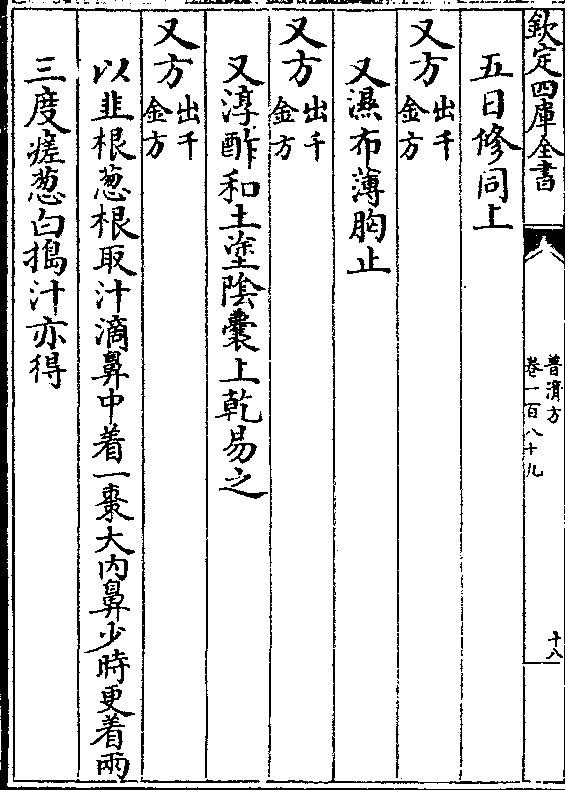 欽定四庫全書
普濟方
卷一百八十九
十八
五日修同上
又方出千金方
又濕布薄胸止
又方出千金方
又淳酢和土塗陰囊上乾易之
又方出千金方
以韭根葱根取汁滴鼻中着一棗大内鼻少時更着兩
三度瘥葱白搗汁亦得